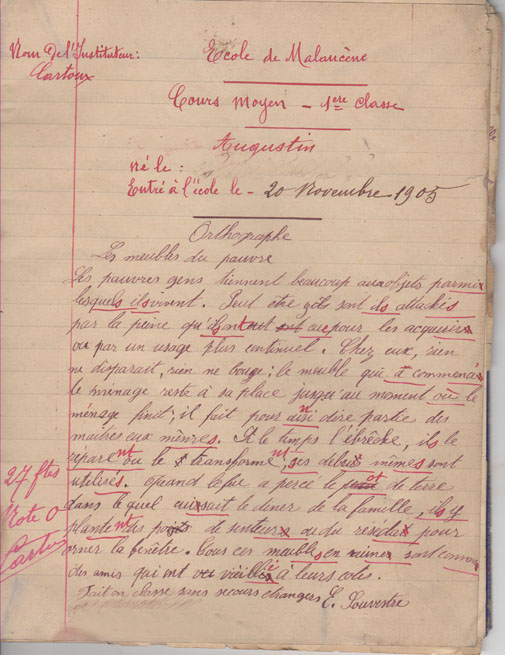 Nom de l'Instituteur:
Cartoux
Ecole de Malaucène
Cours moyen - 1ere Classe
Augustin
né le :
Entré à l'école le - 20 Novembre 1905
Orthographe
Les meubles du pauvre
Les pauvres gens tiennent beaucoup aux objets parmi
lesquels ils vivent. Peut être qils sont ils attachés
par la peine qu'ils ont eue pour les acquerir
ou par un usage plus continuel. Chez eux, rien
ne disparait, rien ne bouge; le meuble qui a commencé
le ménage reste à sa place jusqu'au moment où le
ménage finit; il fait pour ainsi dire partie des
maitres eux mêmes. Si le temps l'ébrèche, ils le
reparent ou le transforment, ses debris mêmes sont
utilisés. Quand le feu a percé le pot de terre
dans le quel cuisait le diner de la famille, ils y
plantent des pois de senteur ou du réséda pour
orner la fenêtre. Tous ces meubles en ruine sont comme
des amis qui ont vieilli à leurs cotes.
Fait en classe sans secours etrangers E. Souvestre
27 ftes
Note 0
Cartoux